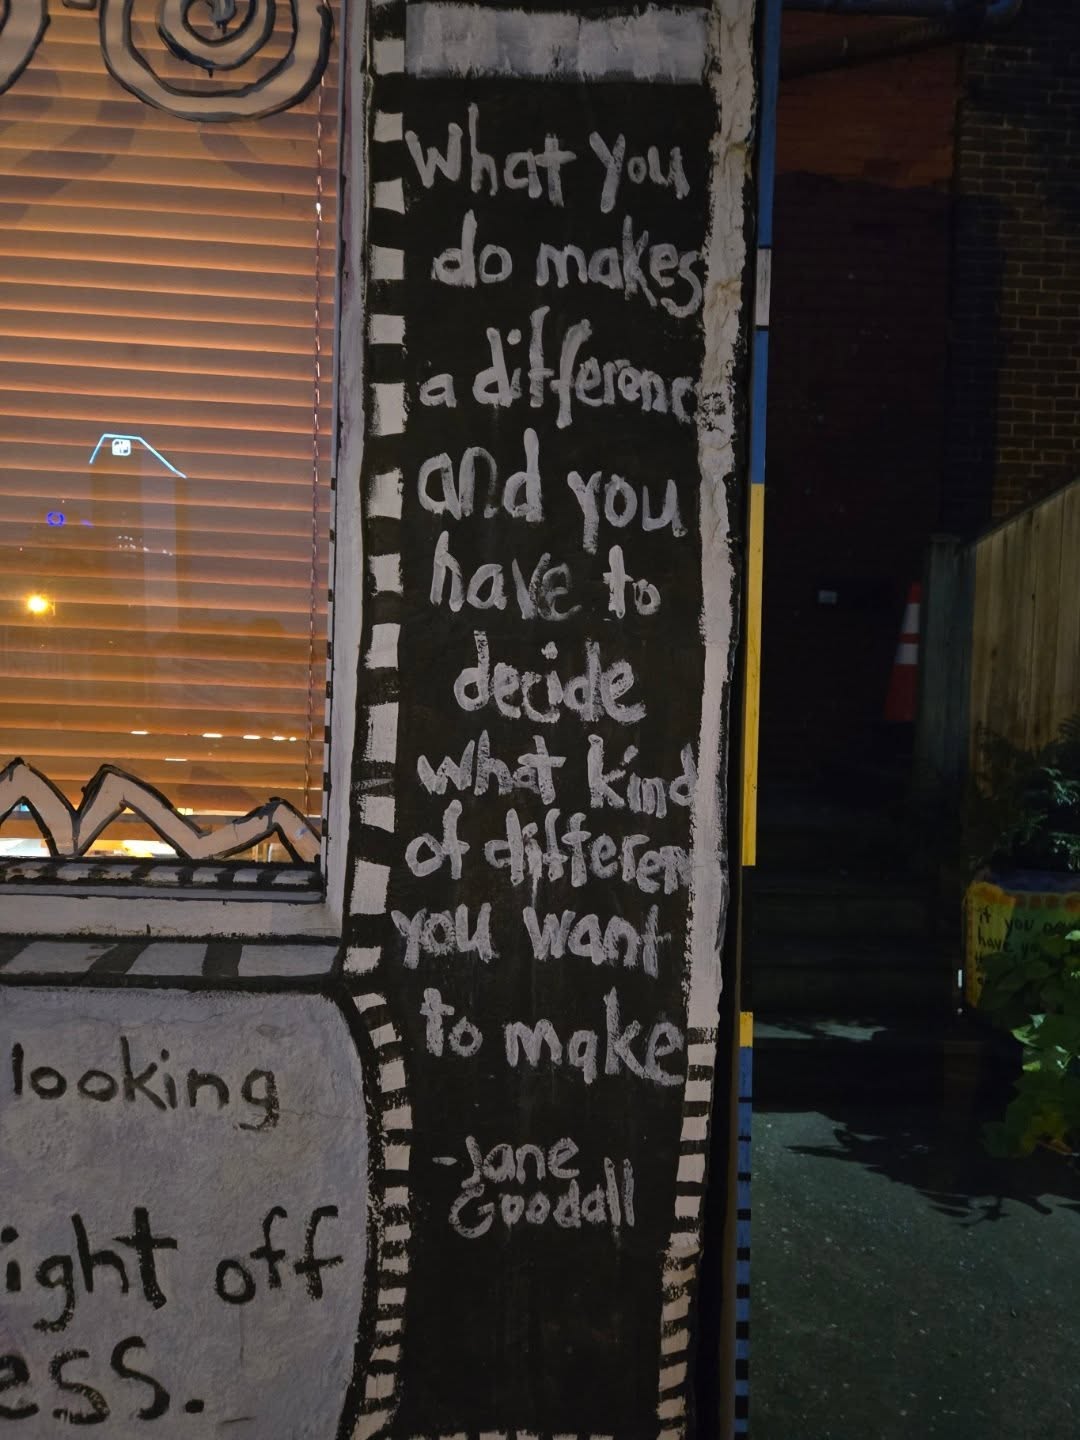 What you
do makes
a difference
and you
have to
decide
what kind
of differen
you want
to make
-Jane
Goodall
looking
ight off
ess.
it you
have yo